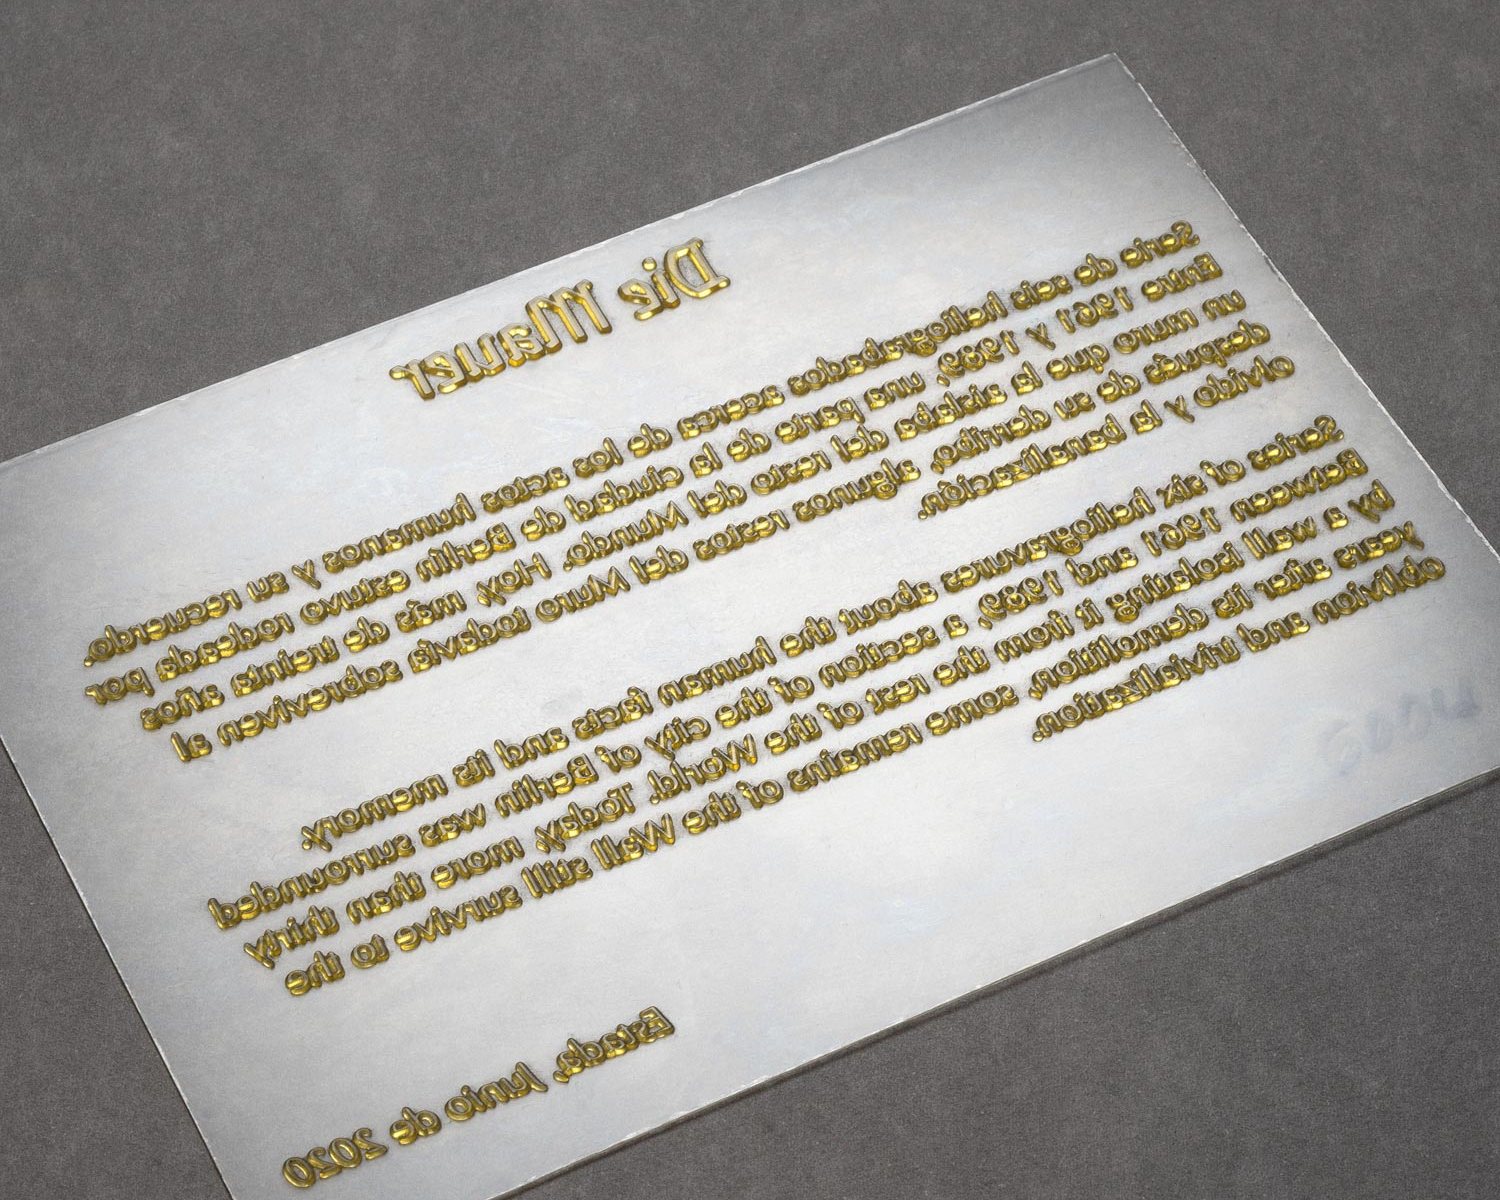 Die Mauer
Serie de seis heliograbados acerca de los actos humanos y su recuerdo.
Entre 1961 y 1989, una parte de la ciudad de Berlín estuvo rodeada por
un muro que la aislaba del resto del Mundo. Hoy, más de treinta años
después de su derribo, algunos restos del Muro todavía sobreviven al
olvido y la banalización.
Series of six heliogravures about the human facts and its memory.
Between 1961 and 1989, a section of the city of Berlin was surrounded
by a wall isolating it from the rest of the World. Today, more than thirty
years after its demolition, some remains of the Wall still survive to the
oblivion and trivialization.
Estada, Junio de 2020